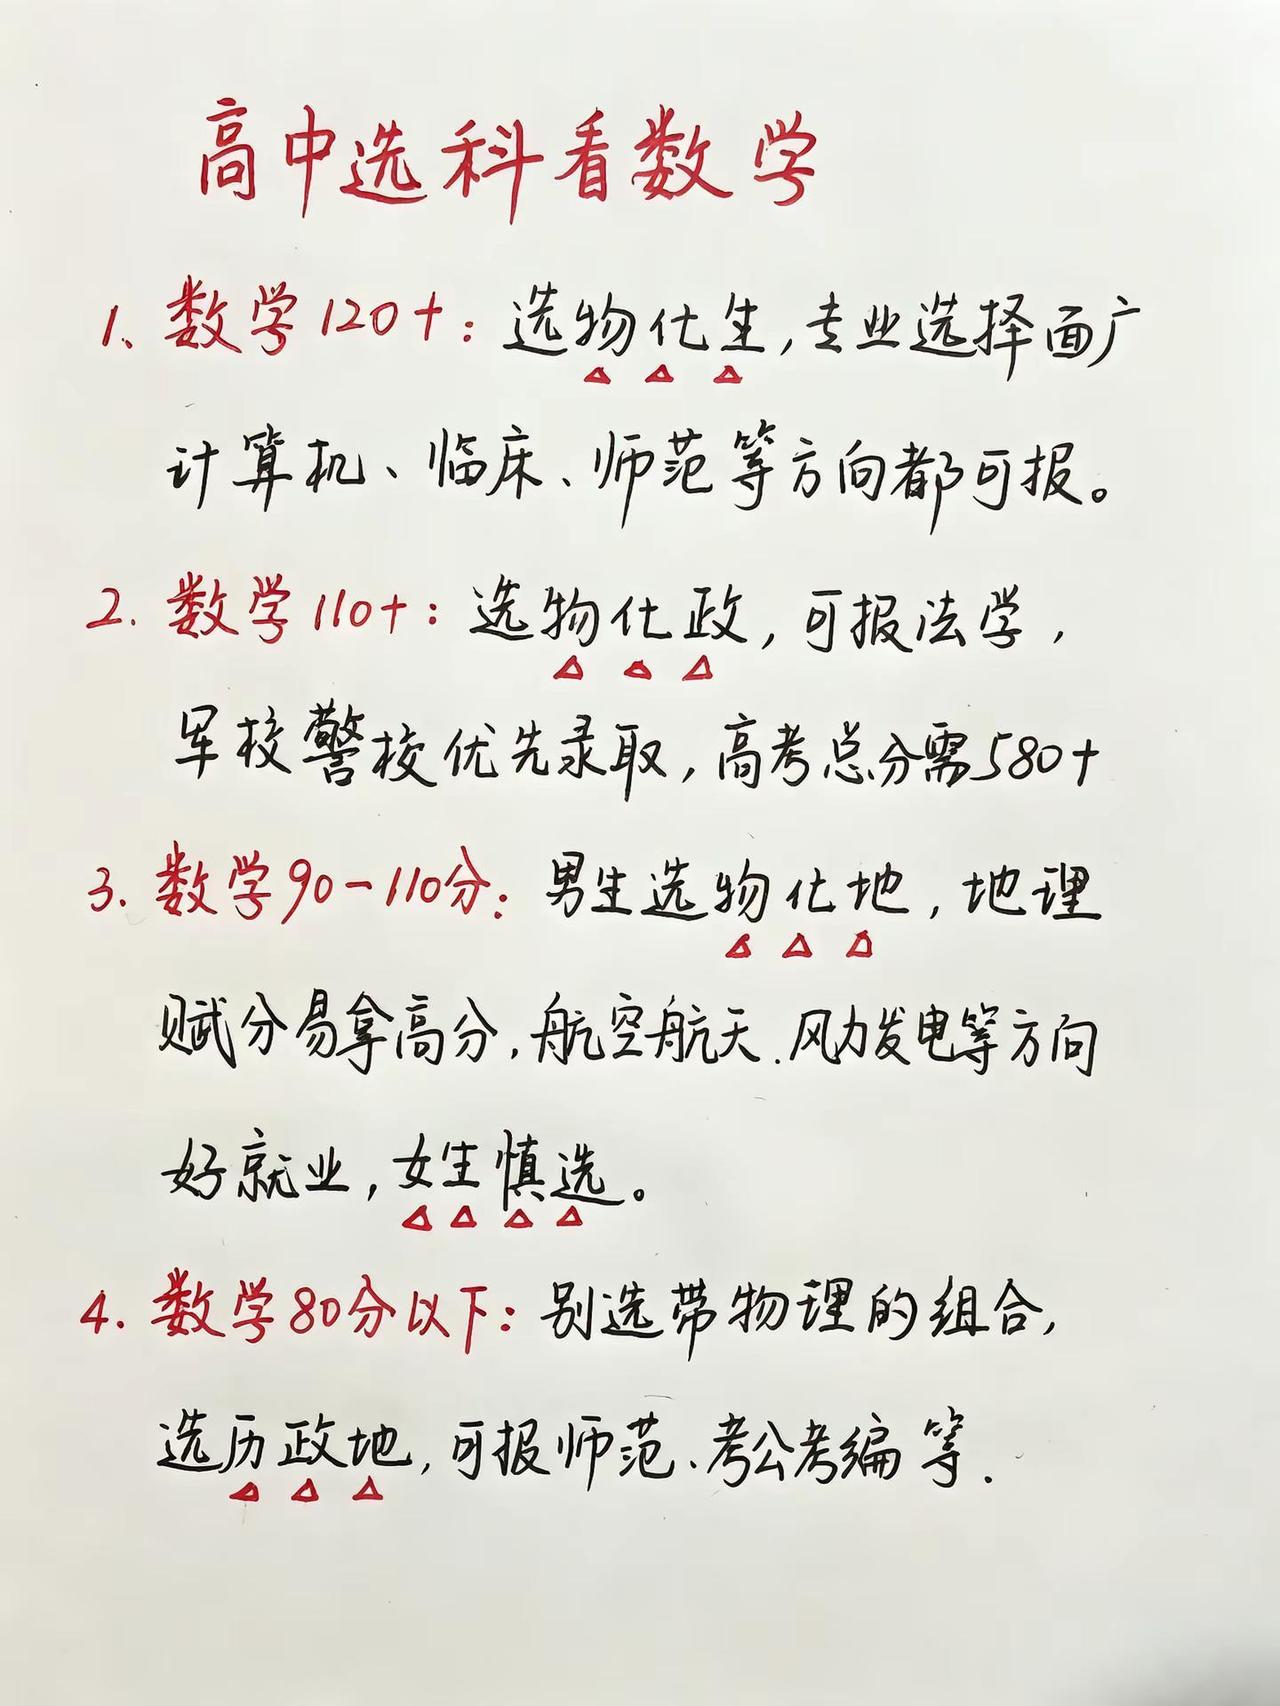 高中选科看数学
1、数学120+:选物化生,专业选择面广
计算机、临床、师范等方向都可报。
2.数学110+:选物化政,可报法学,
军校警校优先录取,高考总分需580+
3.数学90-110分:男生选物化地,地理
赋分易拿高分,航空航天.风力发电等方向
好就业,女生慎选。
4.数学80分以下:别选带物理的组合,
选历政地,可报师范、考公考编等.